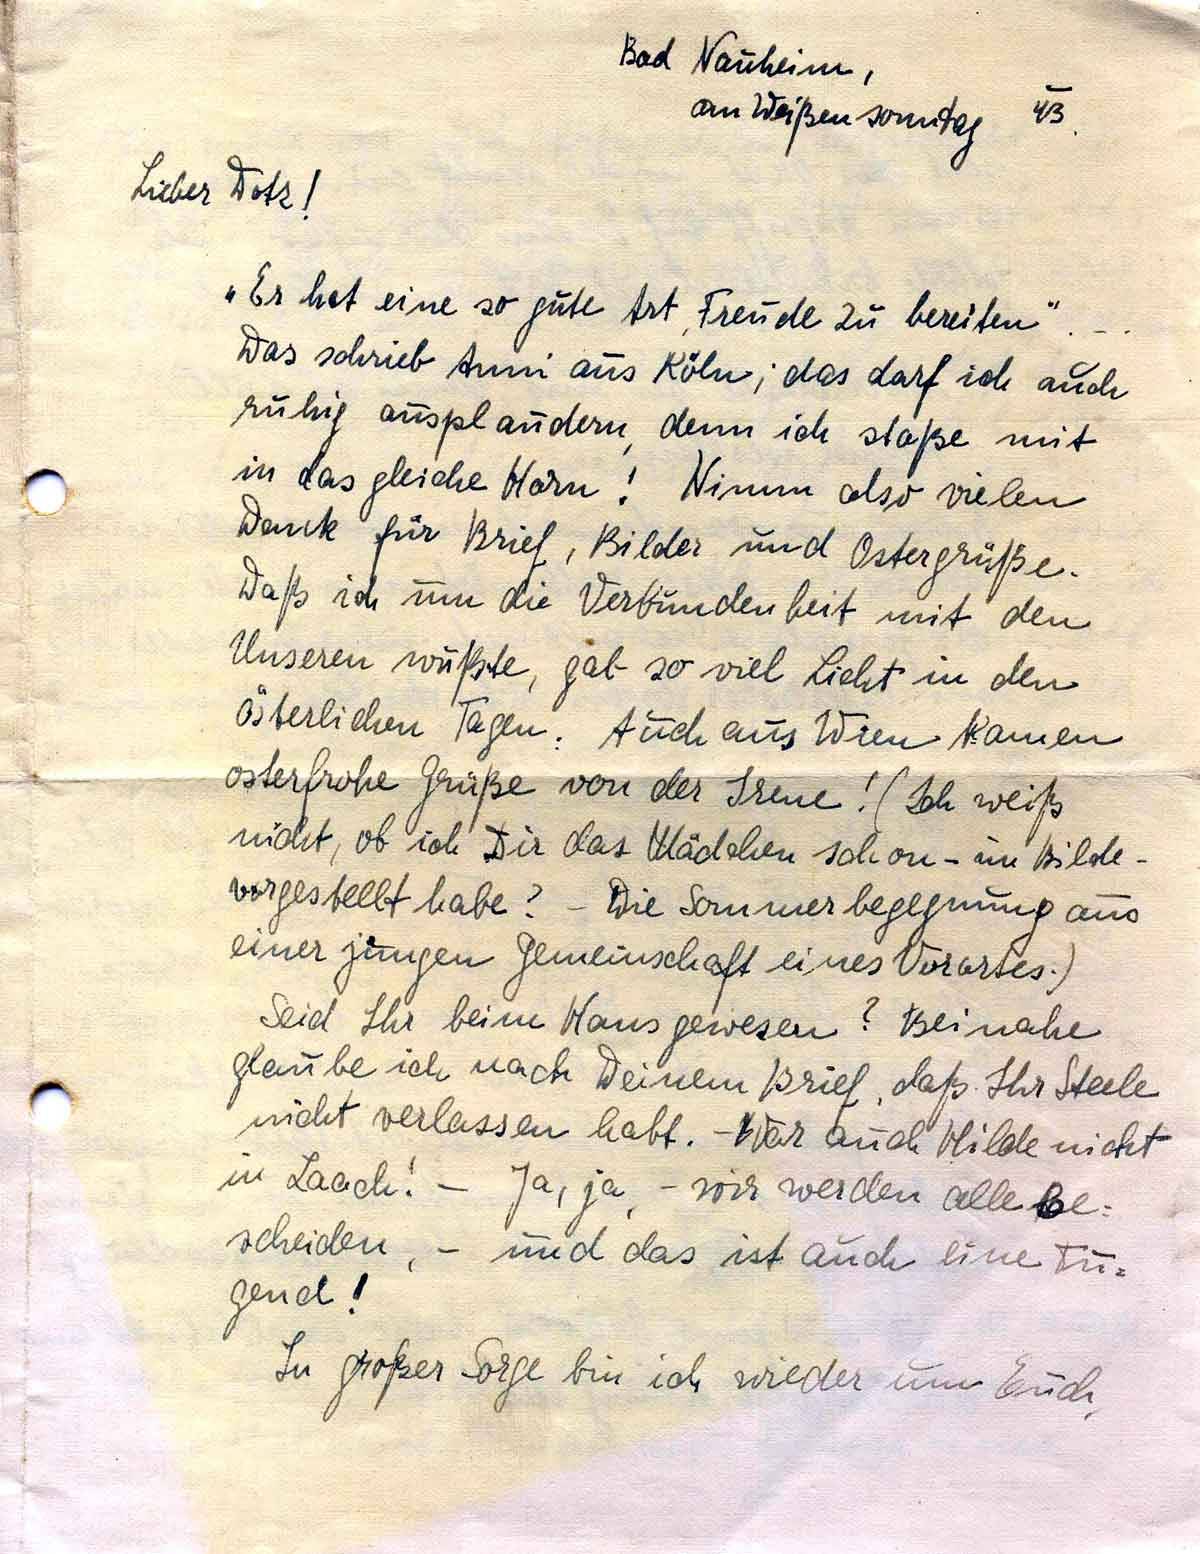 Bad Nauheim,
am Weißensonntag 43.
Lieber Dotz!
„Er hat eine so gute Art, Freude zu bereiten“. – .
Das schrieb Anni aus Köln; das darf ich auch
ruhig ausplaudern, denn ich stoße mit
in das gleiche Horn! Nimm also vielen
Dank für Brief, Bilder und Ostergrüße.
Daß ich um die Verbundenheit mit den
Unseren wußte, gab so viel Licht in den
österlichen Tagen. Auch aus Wien kamen
osterfrohe Grüße von der Irene! (Ich weiß
nicht, ob ich Dir das Mädchen schon – im Bilde –
vorgestellt habe? – Die Sommerbegegnung aus
einer jungen Gemeinschaft eines Vorortes.)
Seid Ihr beim Hans gewesen? Beinahe
glaube ich nach Deinem Brief, daß Ihr Steele
nicht verlassen habt. – War auch Hilde nicht
in Laach! – Ja, ja, – wir werden alle be=
scheiden, – und das ist auch eine Tu=
gend!
In großer Sorge bin ich wieder um Euch,